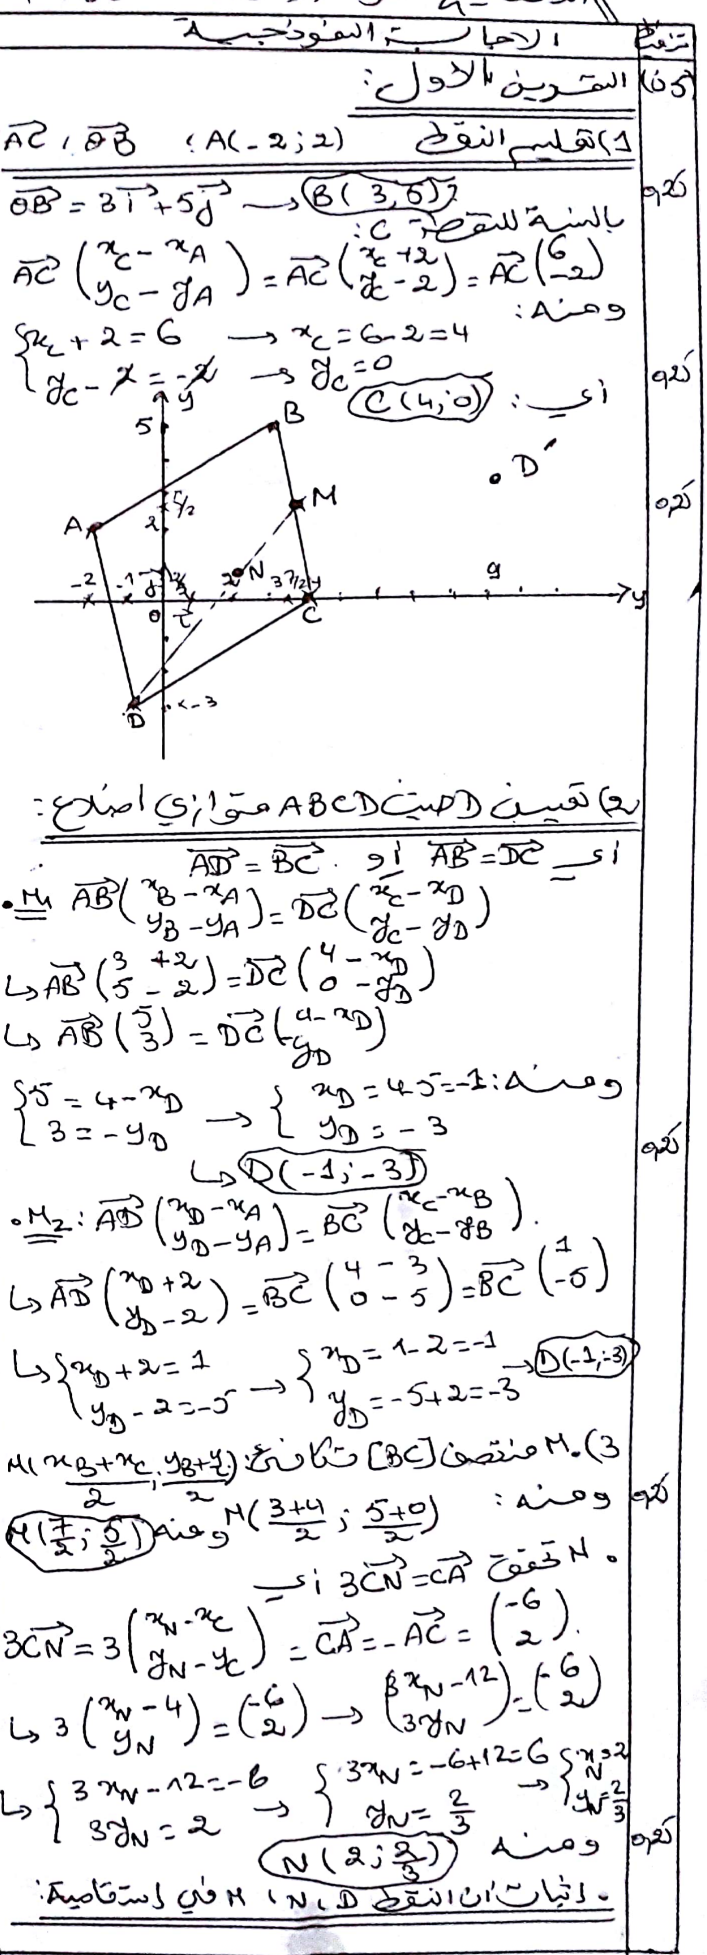 الاجابة النموذجية
تنقيط
التمرين الأول:
(5ن)
1) تعليم النقط A(-2;2) ، OB ، AC
OB = 3i + 5j → B(3,5)
0,25
بالنسبة للنقطة C:
AC (xC - xA ; yC - yA) = AC (xC + 2 ; yC - 2) = AC (6 ; -2)
ومنه:
{ xC + 2 = 6 → xC = 6 - 2 = 4
yC - 2 = -2 → yC = 0
0,25
أي: C(4;0)
y
5
B
D'
0,25
M
A
2
5/2
N
-2 -1 j 2/3 2 3 7/2 4 9
0 i C y
D
-3
2) تعيين D حيث ABCD متوازي اضلاع:
أي AB = DC أو AD = BC
• M1 AB (xB - xA ; yB - yA) = DC (xC - xD ; yC - yD)
↳ AB (3 + 2 ; 5 - 2) = DC (4 - xD ; 0 - yD)
↳ AB (5 ; 3) = DC (4 - xD ; -yD)
ومنه: { 5 = 4 - xD ; 3 = -yD → { xD = 4-5 = -1 ; yD = -3
↳ D(-1;-3)
0,25
• M2: AD (xD - xA ; yD - yA) = BC (xC - xB ; yC - yB).
↳ AD (xD + 2 ; yD - 2) = BC (4 - 3 ; 0 - 5) = BC (1 ; -5)
↳ { xD + 2 = 1 ; yD - 2 = -5 → { xD = 1 - 2 = -1 ; yD = -5 + 2 = -3 → D(-1;-3)
3) • M منتصف [BC] M((xB + xC)/2 ; (yB + yC)/2)
ومنه: M((3+4)/2 ; (5+0)/2) ومنه M(7/2 ; 5/2)
0,25
• N تحقق 3CN = CA أي
3CN = 3 (xN - xC ; yN - yC) = CA = -AC = (-6 ; 2).
↳ 3 (xN - 4 ; yN) = (-6 ; 2) → (3xN - 12 ; 3yN) = (-6 ; 2)
↳ { 3xN - 12 = -6 ; 3yN = 2 → { 3xN = -6 + 12 = 6 ; yN = 2/3 → { xN = 2 ; yN = 2/3
ومنه N(2 ; 2/3)
0,25
• إثبات ان النقط D ، N ، M في إستقامية: